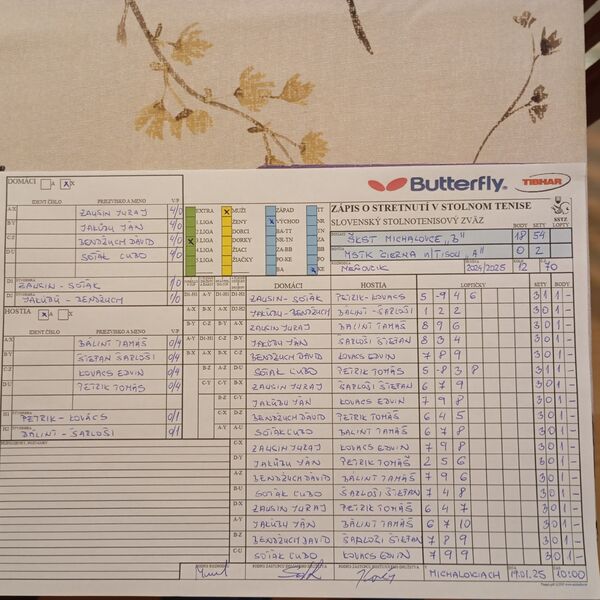 Butterfly
TIBHAR
ZÁPIS O STRETNUTÍ V STOLNOM TENISE
SLOVENSKÝ STOLNOTENISOVÝ ZVÄZ
BODY SETY LOPTY
ŠKST MICHALOVCE „B" 18 54
MSTK ČIERNA n/TISOU „A" 0 2
2024/2025 12 70
DOMÁCI A X
IDENT ČÍSLO PRIEZVISKO A MENO V/P
A/X ZAUSIN JURAJ 4/0
B/Y JAKÚBU JÁN 4/0
C/Z BENDŽUCH DÁVID 4/0
D/U SOŤÁK ĽUBO 4/0
D1 ZAUSIN - SOŤÁK 1/0
D2 JAKÚBU - BENDŽUCH 1/0
HOSTIA A X
IDENT ČÍSLO PRIEZVISKO A MENO V/P
A/X BÁLINT TAMÁŠ 0/4
B/Y ŠTEFAN ŠARLOŠI 0/4
C/Z KOVACS EDVIN 0/4
D/U PETRIK TOMÁŠ 0/4
H1 PETRIK - KOVÁCS 0/1
H2 BÁLINT - ŠARLOŠI 0/1
EXTRA MUŽI ZÁPAD TT
1 LIGA ŽENY VÝCHOD NR
2 LIGA DORCI ZA-BB TN
3 LIGA DORKY NR-TN ZA
4 LIGA ŽIACI BA-TT BB
5 LIGA ŽIAČKY ZA PO
BA KE
DOMÁCI HOSTIA LOPTIČKY SETY BODY
ZAUSIN - SOŤÁK PETRIK - KOVACS 5 -9 4 6 3 1 1 -
JAKÚBU - BENDŽUCH BÁLINT - ŠARLOŠI 1 2 2 3 0 1 -
ZAUSIN JURAJ BÁLINT TAMÁŠ 8 9 6 3 0 1 -
JAKÚBU JÁN ŠARLOŠI ŠTEFAN 8 3 4 3 0 1 -
BENDŽUCH DÁVID KOVACS EDVIN 7 8 9 3 0 1 -
SOŤÁK ĽUBO PETRIK TOMÁŠ 5 -8 3 8 3 1 1 -
ZAUSIN JURAJ ŠARLOŠI ŠTEFAN 6 7 9 3 0 1 -
JAKÚBU JÁN KOVACS EDVIN 7 9 8 3 0 1 -
BENDŽUCH DÁVID PETRIK TOMÁŠ 6 4 5 3 0 1 -
SOŤÁK ĽUBO BÁLINT TAMÁŠ 6 7 8 3 0 1 -
C-X ZAUSIN JURAJ KOVACS EDVIN 9 7 8 3 0 1 -
D-Y JAKÚBU JÁN PETRIK TOMÁŠ 2 5 6 3 0 1 -
A-Z BENDŽUCH DÁVID BÁLINT TAMÁŠ 7 9 6 3 0 1 -
B-U SOŤÁK ĽUBO ŠARLOŠI ŠTEFAN 7 4 8 3 0 1 -
D-X ZAUSIN JURAJ PETRIK TOMÁŠ 6 4 7 3 0 1 -
A-Y JAKÚBU JÁN BÁLINT TAMÁŠ 6 7 10 3 0 1 -
B-Z BENDŽUCH DAVID ŠARLOŠI ŠTEFAN 7 8 9 3 0 1 -
C-U SOŤÁK ĽUBO KOVACS EDVIN 7 7 9 3 0 1 -
V MICHALOVCIACH 19.01.25 10:00